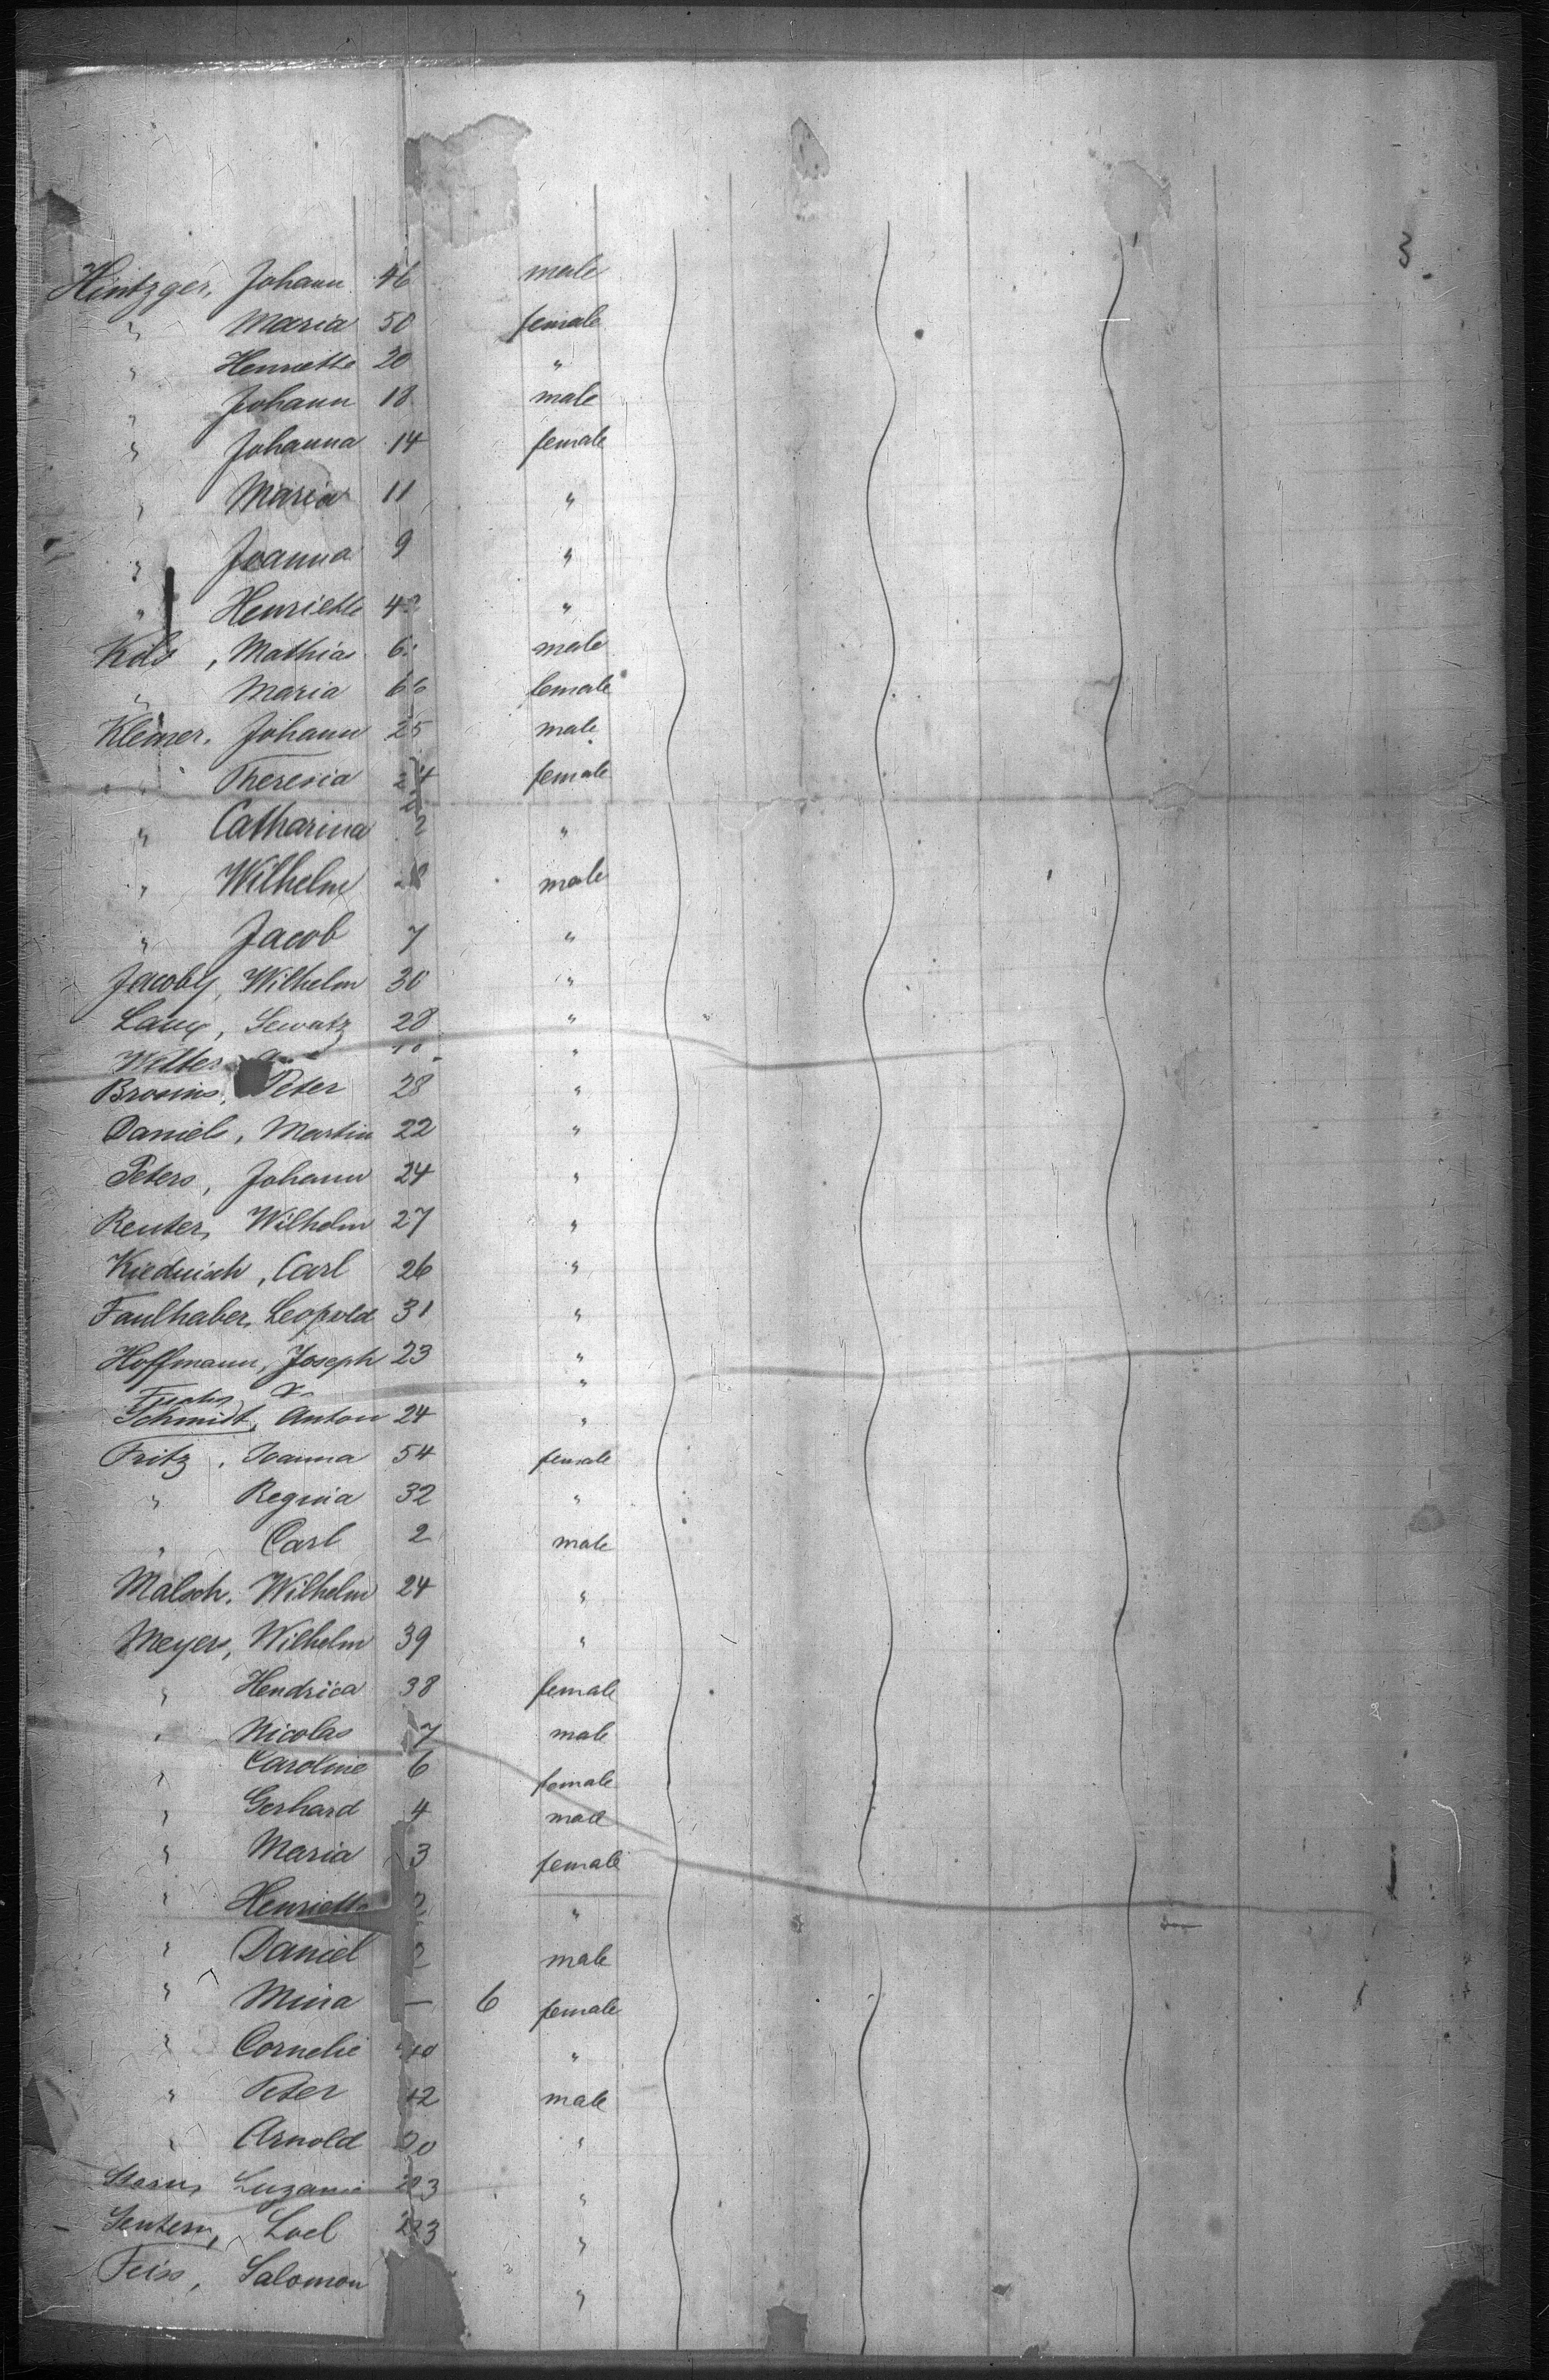 3
Hintzger, Johann 46 male
" Maria 50 female
" Henriette 20 "
" Johann 18 male
" Johanna 14 female
" Maria 11 "
" Joanna 9 "
" Henriette "
, Mathias male
" Maria 66 female
Kleiner, Johann 25 male
" Theresia 24 female
" Catharina "
" Wilhelm male
" Jacob 7 "
Jacoby, Wilhelm 30 "
28 "
"
Brosius, Peter 28 "
Daniels, Martin 22 "
Peters, Johann 24 "
Reuter, Wilhelm 27 "
Carl 26 "
Faulhaber, Leopold 31 "
Hoffmann, Joseph 23 "
Fuchs "
Schmidt, Anton 24 "
Fritz, Joanna 54 female
" Regina 32 "
" Carl 2 male
Malsch, Wilhelm 24 "
Meyer, Wilhelm 39 "
" Hendrica 38 female
" Nicolas 7 male
" Caroline 6 female
" Gerhard 4 male
" Maria 3 female
" Henriette "
" Daniel male
" Mina — 6 female
" Cornelie "
" Peter male
" Arnold "
"
"
Feiss, Salomon "